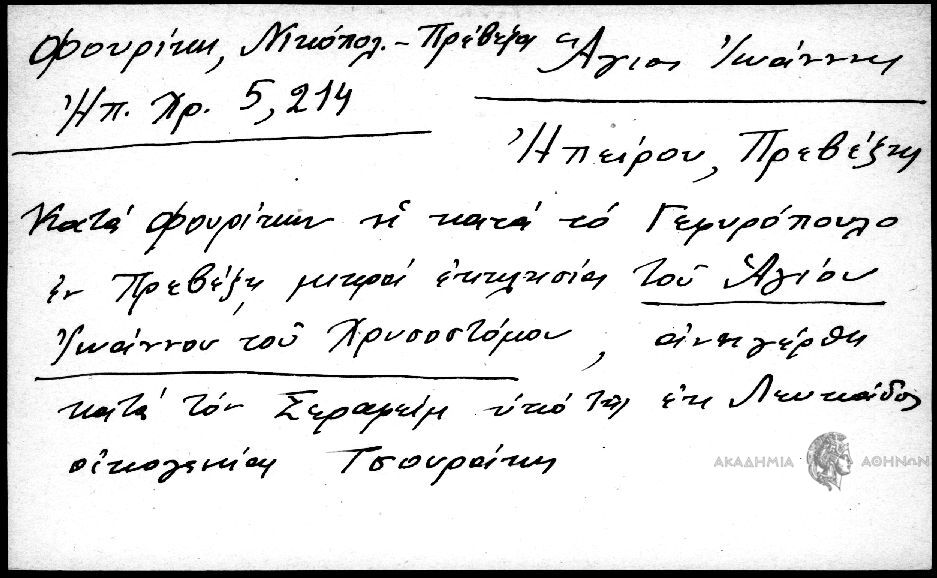 Φουρίκη, Νικόπολ.-Πρέβεζα
Ἠπ. Χρ. 5,214
Ἅγιος Ἰωάννης
Ἠπείρου, Πρεβέζης
Κατά Φουρίκην ἤ κατά τό Γεφυρόπουλο
ἐν Πρεβέζῃ μικρά ἐκκλησία τοῦ Ἁγίου
Ἰωάννου τοῦ Χρυσοστόμου, ἀνηγέρθη
κατά τόν Σεραφείμ ὑπό τῆς ἐκ Λευκάδος
οἰκογενείας Τσουράκη
ΑΚΑΔΗΜΙΑ ΑΘΗΝΩΝ